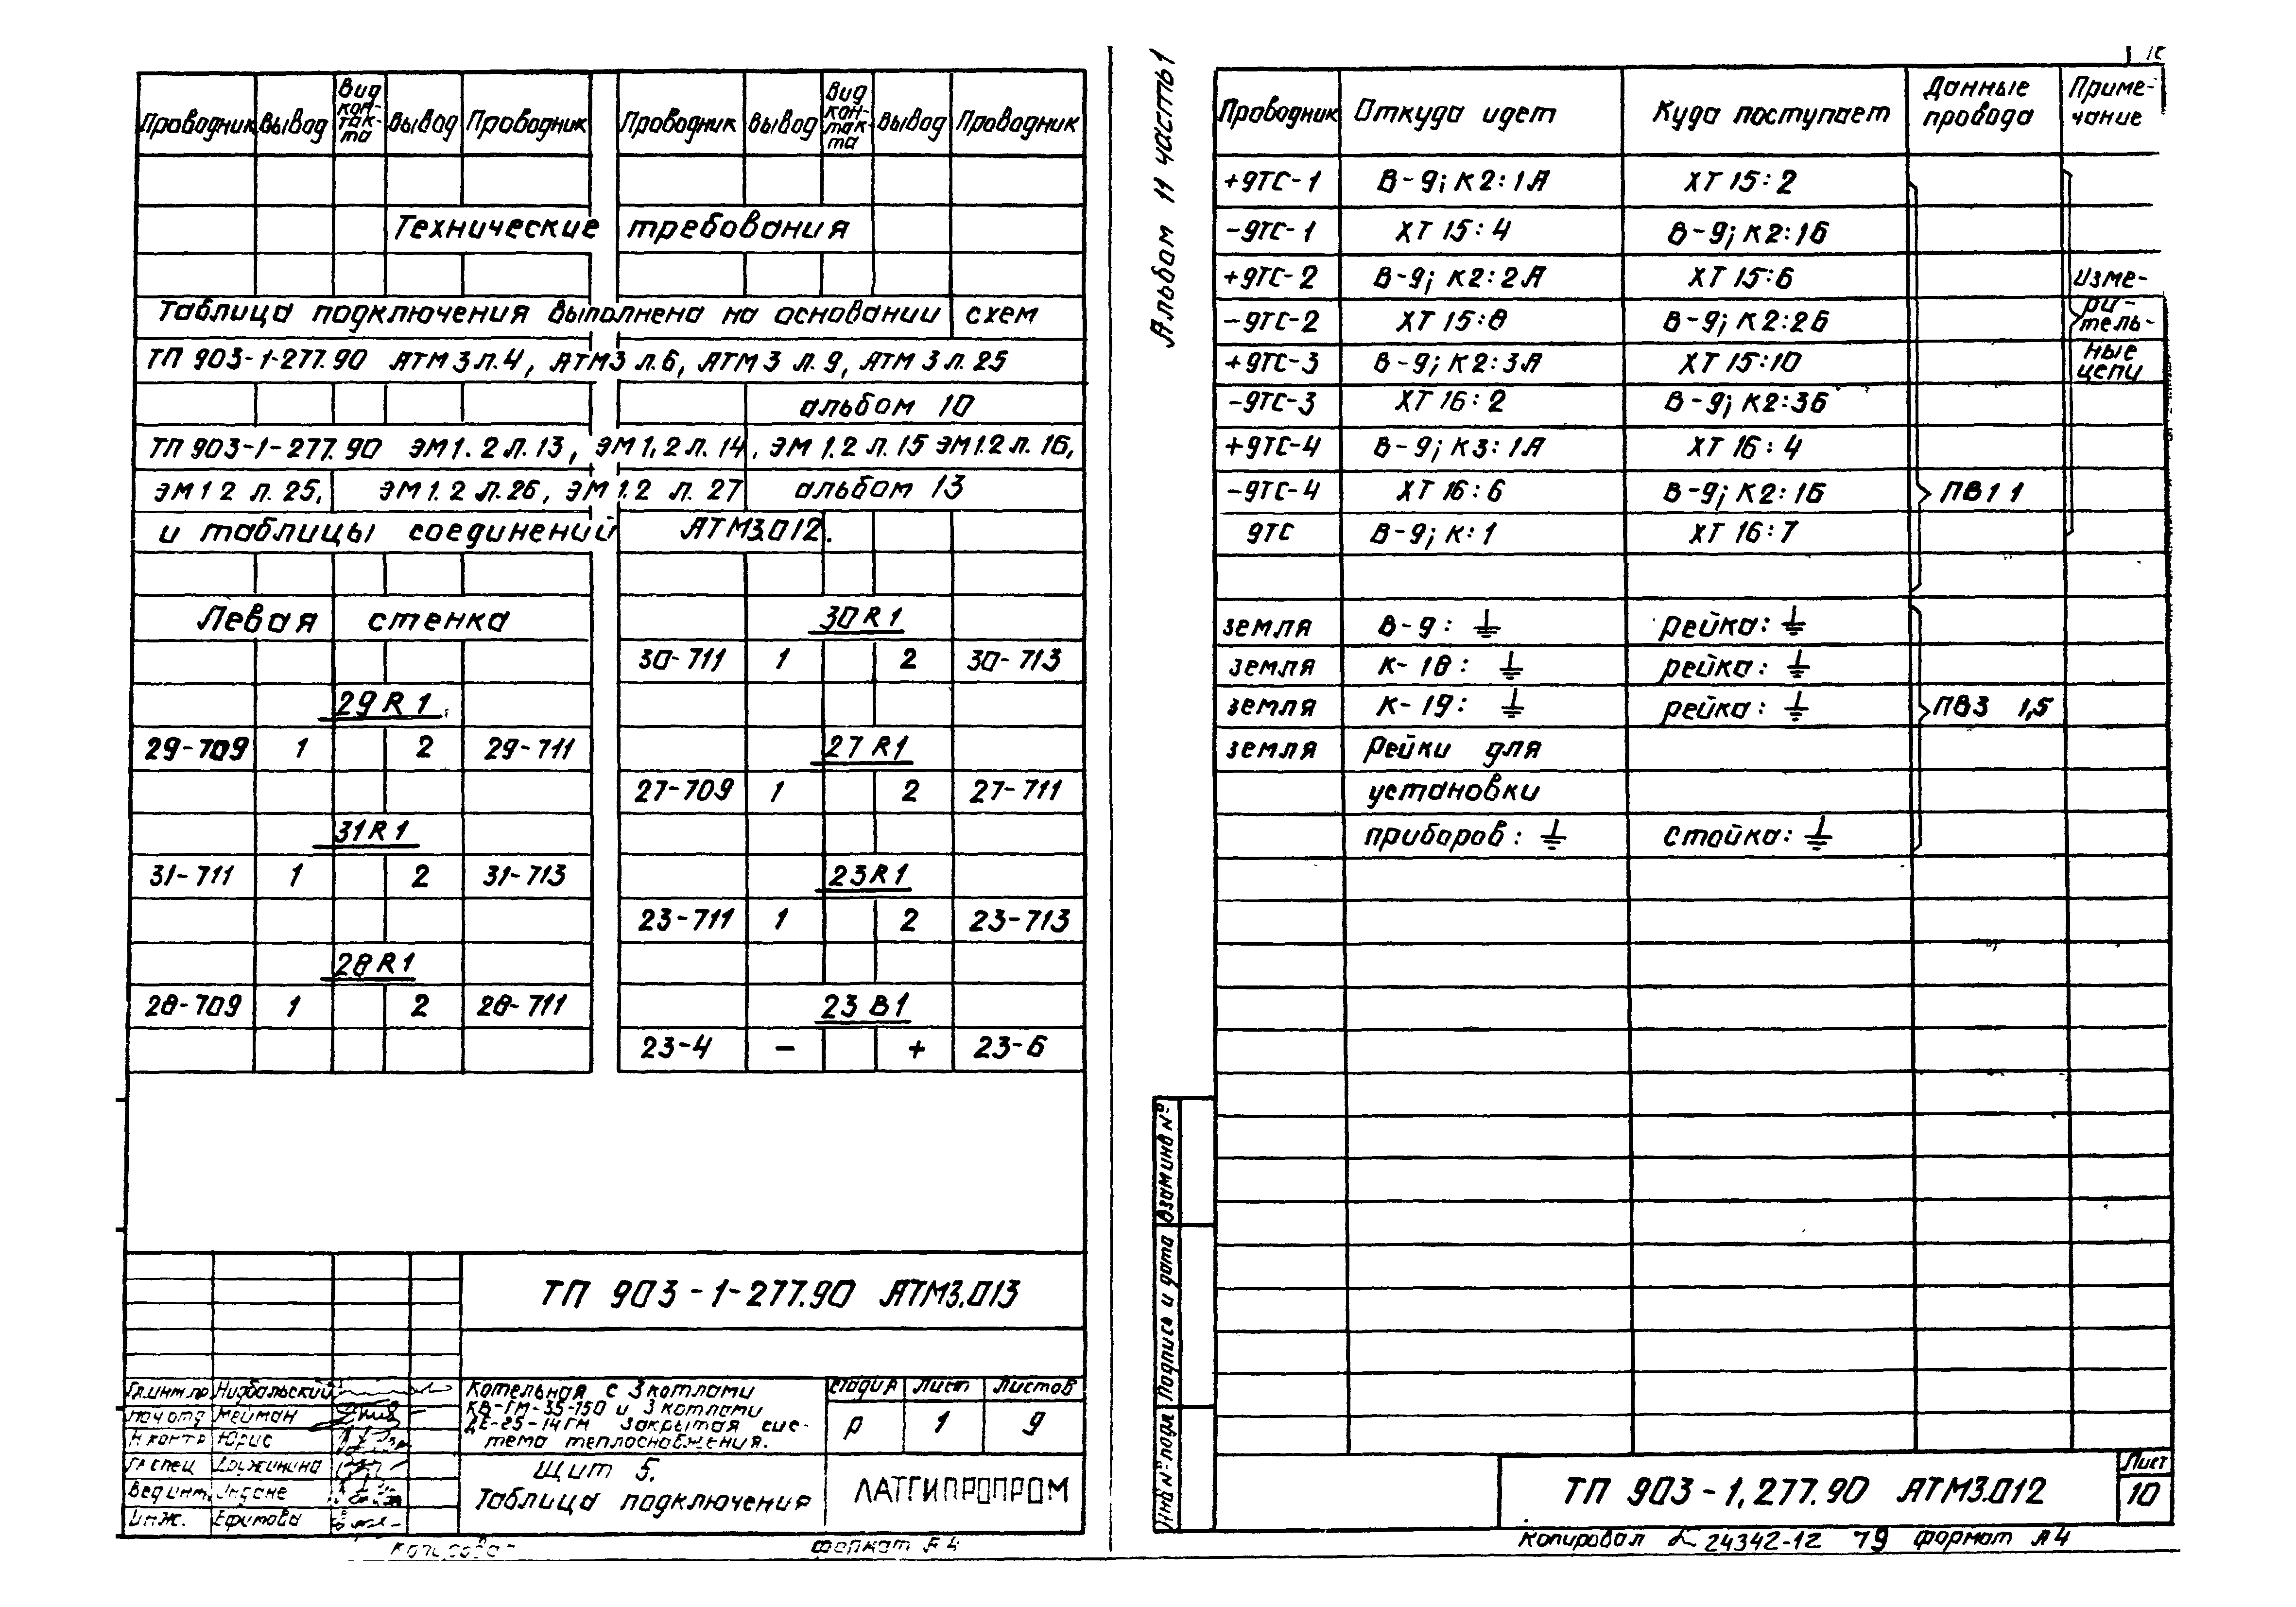 Проводник Вывод Вид кон-так-та Вывод Проводник Проводник Вывод Вид кон-так-та Вывод Проводник
Технические требования
Таблица подключения выполнена на основании схем
ТП 903-1-277.90 АТМ3 л.4, АТМ3 л.6, АТМ3 л.9, АТМ3 л.25
альбом 10
ТП 903-1-277.90 ЭМ1.2 л.13, ЭМ1.2 л.14, ЭМ1.2 л.15 ЭМ1.2 л.16,
ЭМ1 2 л.25, ЭМ1.2 л.26, ЭМ1.2 л.27 альбом 13
и таблицы соединений АТМ3.012.
Левая стенка
29R1
29-709 1 2 29-711
31R1
31-711 1 2 31-713
28R1
28-709 1 2 28-711
30R1
30-711 1 2 30-713
27R1
27-709 1 2 27-711
23R1
23-711 1 2 23-713
23В1
23-4 - + 23-6
ТП 903-1-277.90 АТМ3.013
Гл.инж.пр Нидбальский
Нач отд Мейман
Н контр Юрис
Гл спец Дружинина
Вед инж.
Инж. Ефимова
Котельная с 3 котлами
КВ-ГМ-35-150 и 3 котлами
ДЕ-25-14ГМ Закрытая сис-
тема теплоснабжения.
Стадия Лист Листов
Р 1 9
Щит 5.
Таблица подключения
ЛАТГИПРОПРОМ
Копировал
формат А4
Альбом 11 часть 1
Проводник Откуда идет Куда поступает Данные провода Приме-чание
+9ТС-1 В-9; К2:1А ХТ15:2
-9ТС-1 ХТ15:4 В-9; К2:1Б
+9ТС-2 В-9; К2:2А ХТ15:6
-9ТС-2 ХТ15:8 В-9; К2:2Б
+9ТС-3 В-9; К2:3А ХТ15:10
-9ТС-3 ХТ16:2 В-9; К2:3Б
+9ТС-4 В-9; К3:1А ХТ16:4
-9ТС-4 ХТ16:6 В-9; К2:1Б
9ТС В-9; К:1 ХТ16:7
ПВ1 1
Изме-
ри-
тель-
ные
цепи
земля В-9: ⏚ рейка: ⏚
земля К-18: ⏚ рейка: ⏚
земля К-19: ⏚ рейка: ⏚
ПВ3 1,5
земля Рейки для
установки
приборов: ⏚ стойка: ⏚
Инв № подл Подпись и дата Взам инв №
ТП 903-1,277.90 АТМ3.012
Лист
10
Копировал 24342-12 79 формат А4